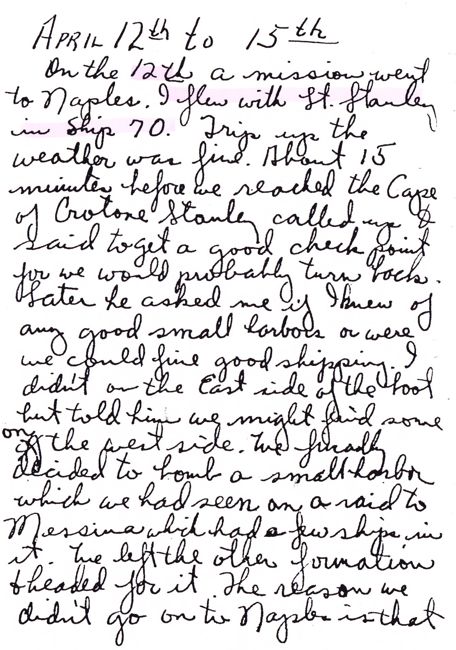 APRIL 12th to 15th
On the 12th a mission went
to Naples. I flew with Lt. Stanley
in Ship 70. Trip up the
weather was fine. About 15
minutes before we reached the Cape
of Crotone Stanley called up &
said to get a good check point
for we would probably turn back.
Later he asked me if I knew of
any good small harbors or were
we could fine good shipping. I
didn't on the East side of the boot
but told him we might find some
on the west side. We finally
decided to bomb a small harbor
which we had seen on a raid to
Messina which had a few ships in
it. We left the other formation
& headed for it. The reason we
didn't go on to Naples is that